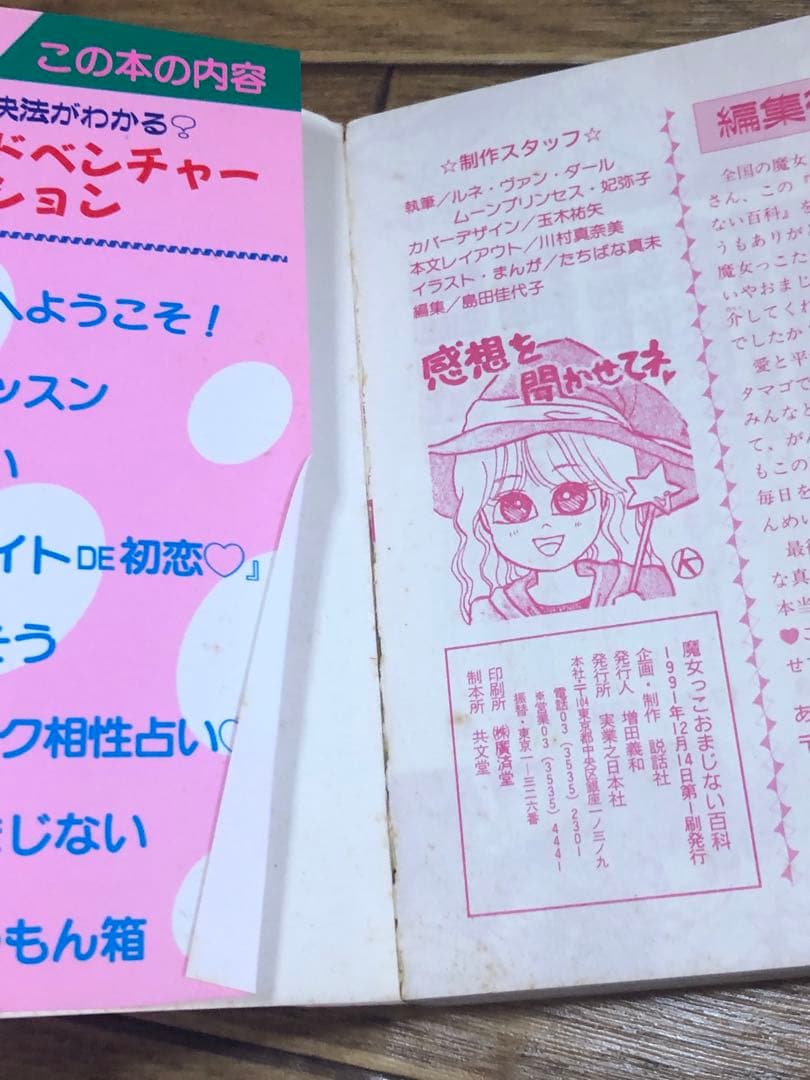 この本の内容
決法がわかる
ドベンチャー
ション
へようこそ！
ッスン
い
イトDE初恋♡』
そう
ク相性占い♡
まじない
もん箱
☆制作スタッフ☆
執筆／ルネ・ヴァン・ダール
ムーンプリンセス・妃弥子
カバーデザイン／玉木祐矢
本文レイアウト／川村真奈美
イラスト・まんが／たちばな真未
編集／島田佳代子
感想を
聞かせてネ
魔女っこおまじない百科
1991年12月14日第1刷発行
企画・制作 説話社
発行人 増田義和
発行所 実業之日本社
本社・〒104東京都中央区銀座一ノ三ノ九
電話03（3535）2301
※営業03（3535）4441
振替・東京一―三二六番
印刷所 ㈱廣済堂
制本所 共文堂
編集
全国の魔女
さん、この『
ない百科』を
うもありが
魔女っこた
いやおまじ
介してくれ
でしたか
愛と平
タマゴマ
みんなと
て、がん
もこの
毎日を
んめい
最後
な真
本当
♥こ
せ
あ